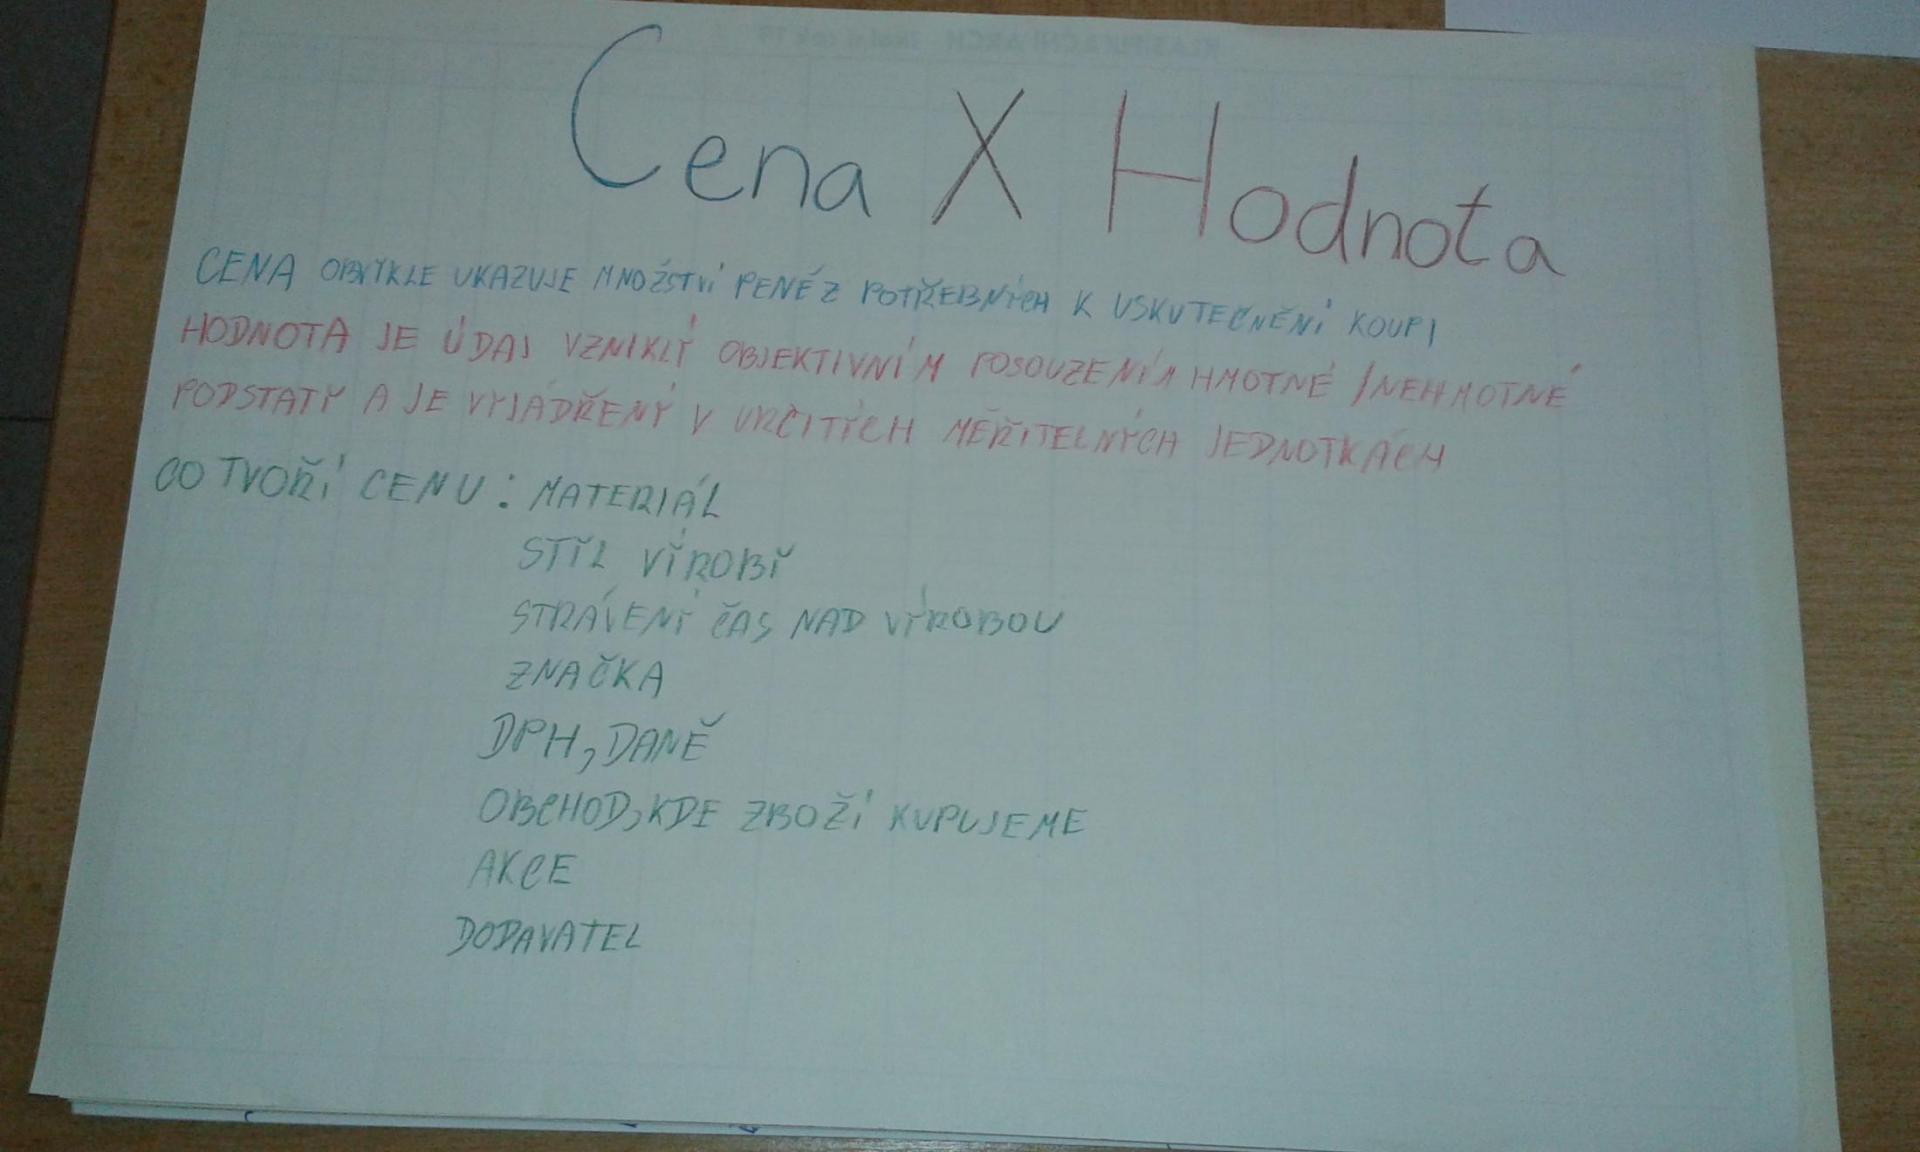 Cena X Hodnota
CENA OBVYKLE UKAZUJE MNOŽSTVÍ PENĚZ POTŘEBNÝCH K USKUTEČNĚNÍ KOUPI
HODNOTA JE ÚDAJ VZNIKLÝ OBJEKTIVNÍM POSOUZENÍM HMOTNÉ/NEHMOTNÉ
PODSTATY A JE VYJÁDŘENÝ V URČITÝCH MĚŘITELNÝCH JEDNOTKÁCH
CO TVOŘÍ CENU: MATERIÁL
STYL VÝROBY
STRÁVENÝ ČAS NAD VÝROBOU
ZNAČKA
DPH, DANĚ
OBCHOD, KDE ZBOŽÍ KUPUJEME
AKCE
DODAVATEL